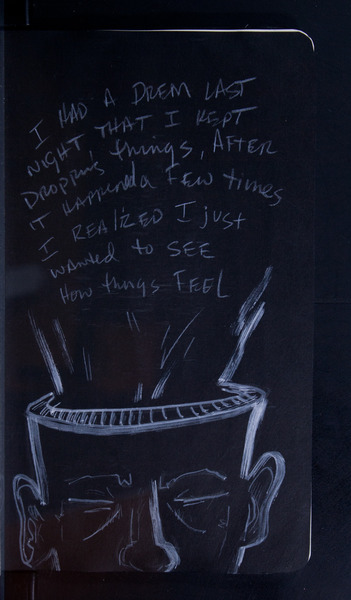 I HAD A DREM LAST
NIGHT, THAT I KEPT
DROPPING things, AFTER
IT HAPPENDA FEW times
I REALIZED I just
wanted to SEE
How things FEEL